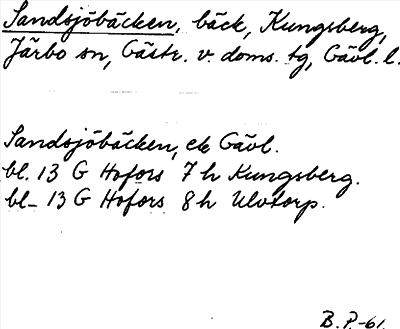 Sandsjöbäcken, bäck, Kungsberg,
Järbo sn, Gästr. v. doms. tg, Gävl. l.
Sandsjöbäcken, ek Gävl.
bl. 13 G Hofors 7 h Kungsberg.
bl- 13 G Hofors 8 h Ulvtorp.
B. P.-61.